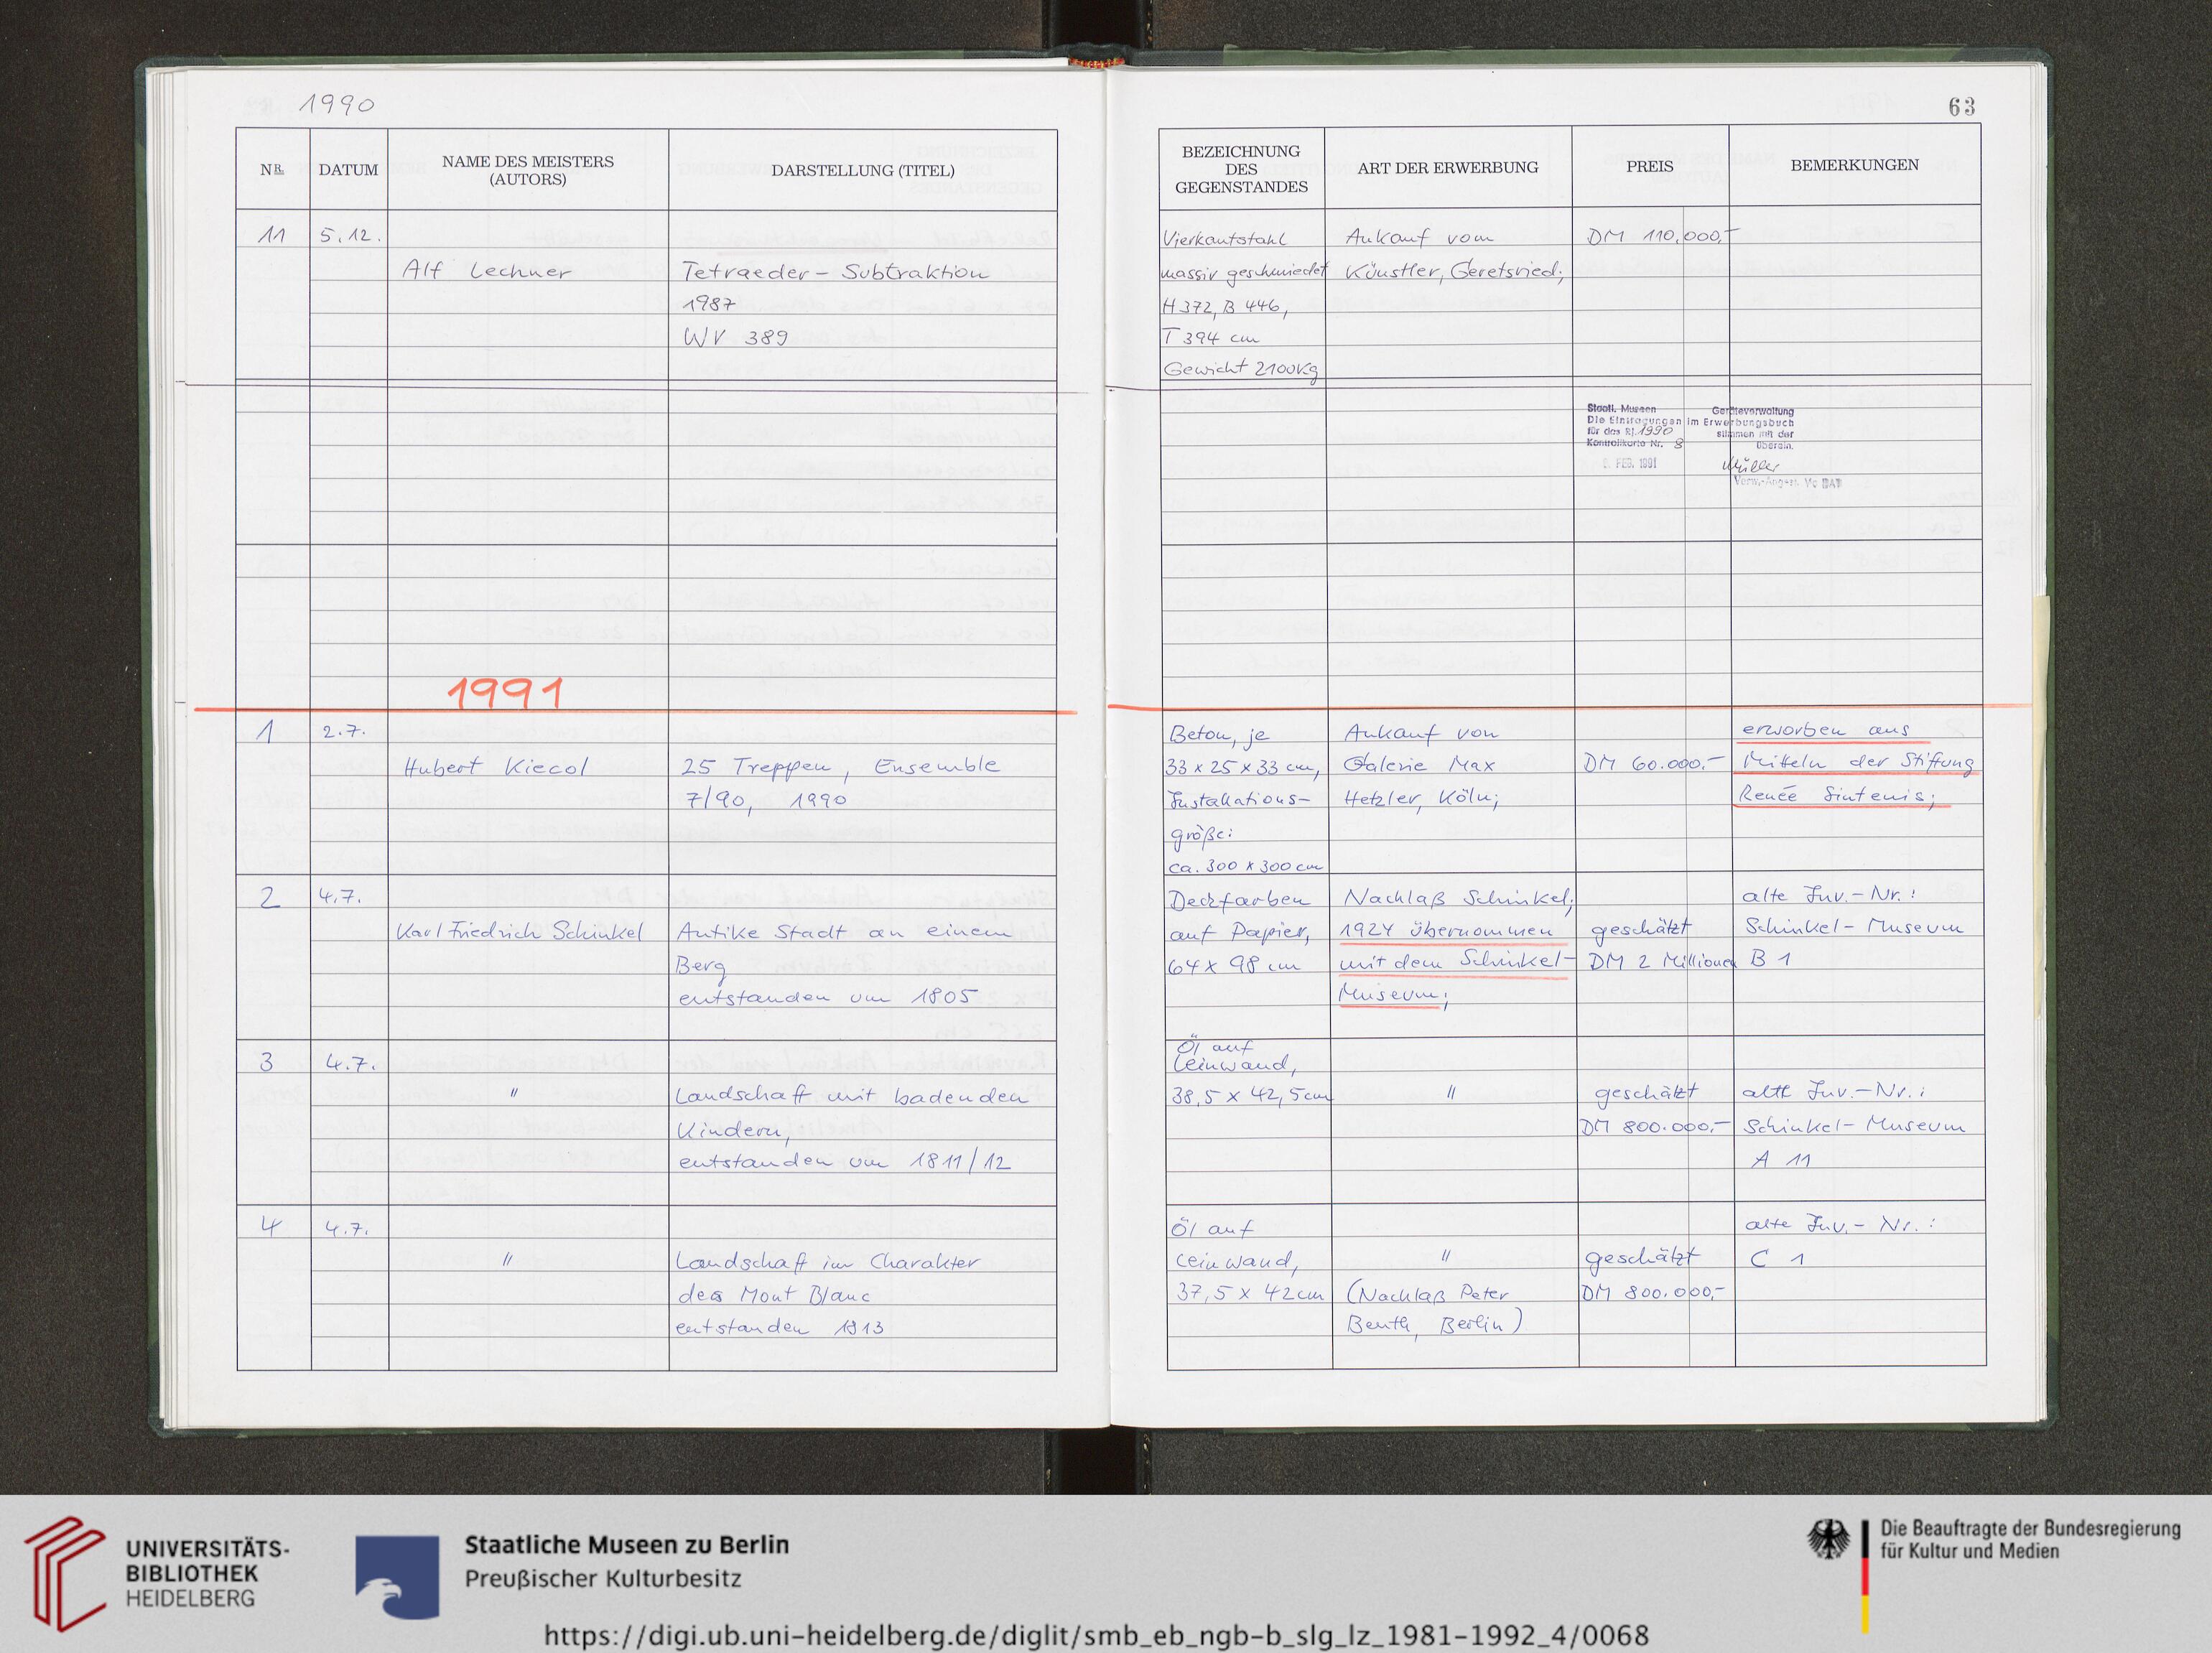 1990
63
NR. DATUM NAME DES MEISTERS (AUTORS) DARSTELLUNG (TITEL)
BEZEICHNUNG DES GEGENSTANDES ART DER ERWERBUNG PREIS BEMERKUNGEN
11 5.12.
Alf Lechner Tetraeder - Subtraktion
1987
WV 389
Vierkantstahl Ankauf vom DM 110.000,-
massiv geschmiedet Künstler, Geretsried;
H 372, B 446,
T 394 cm
Gewicht 2100 kg
Staatl. Museen Geräteverwaltung
Die Eintragungen im Erwerbungsbuch
für das Rj. 1990 stimmen mit der
Kontrollkarte Nr. 8 überein.
FEB. 1991 Müller
Verw.-Angest. Vc BAT
1991
1 2.7.
Hubert Kiecol 25 Treppen, Ensemble
7/90, 1990
Beton, je Ankauf von erworben aus
33 x 25 x 33 cm, Galerie Max DM 60.000.- Mitteln der Stiftung
Installations- Hetzler, Köln; Renée Sintenis;
größe:
ca. 300 x 300 cm
2 4.7.
Karl Friedrich Schinkel Antike Stadt an einem
Berg
entstanden um 1805
Deckfarben Nachlaß Schinkel; alte Inv.-Nr.:
auf Papier, 1924 übernommen geschätzt Schinkel-Museum
64 x 98 cm mit dem Schinkel- DM 2 Millionen B 1
Museum;
3 4.7.
" Landschaft mit badenden
Kindern,
entstanden um 1811/12
Öl auf
Leinwand,
38,5 x 42,5 cm " geschätzt alte Inv.-Nr.:
DM 800.000,- Schinkel-Museum
A 11
4 4.7.
" Landschaft im Charakter
des Mont Blanc
entstanden 1813
Öl auf alte Inv.-Nr.:
Leinwand, " geschätzt C 1
37,5 x 42 cm (Nachlaß Peter DM 800.000,-
Beuth, Berlin)
UNIVERSITÄTS-
BIBLIOTHEK
HEIDELBERG
Staatliche Museen zu Berlin
Preußischer Kulturbesitz
Die Beauftragte der Bundesregierung
für Kultur und Medien
https://digi.ub.uni-heidelberg.de/diglit/smb_eb_ngb-b_slg_lz_1981-1992_4/0068